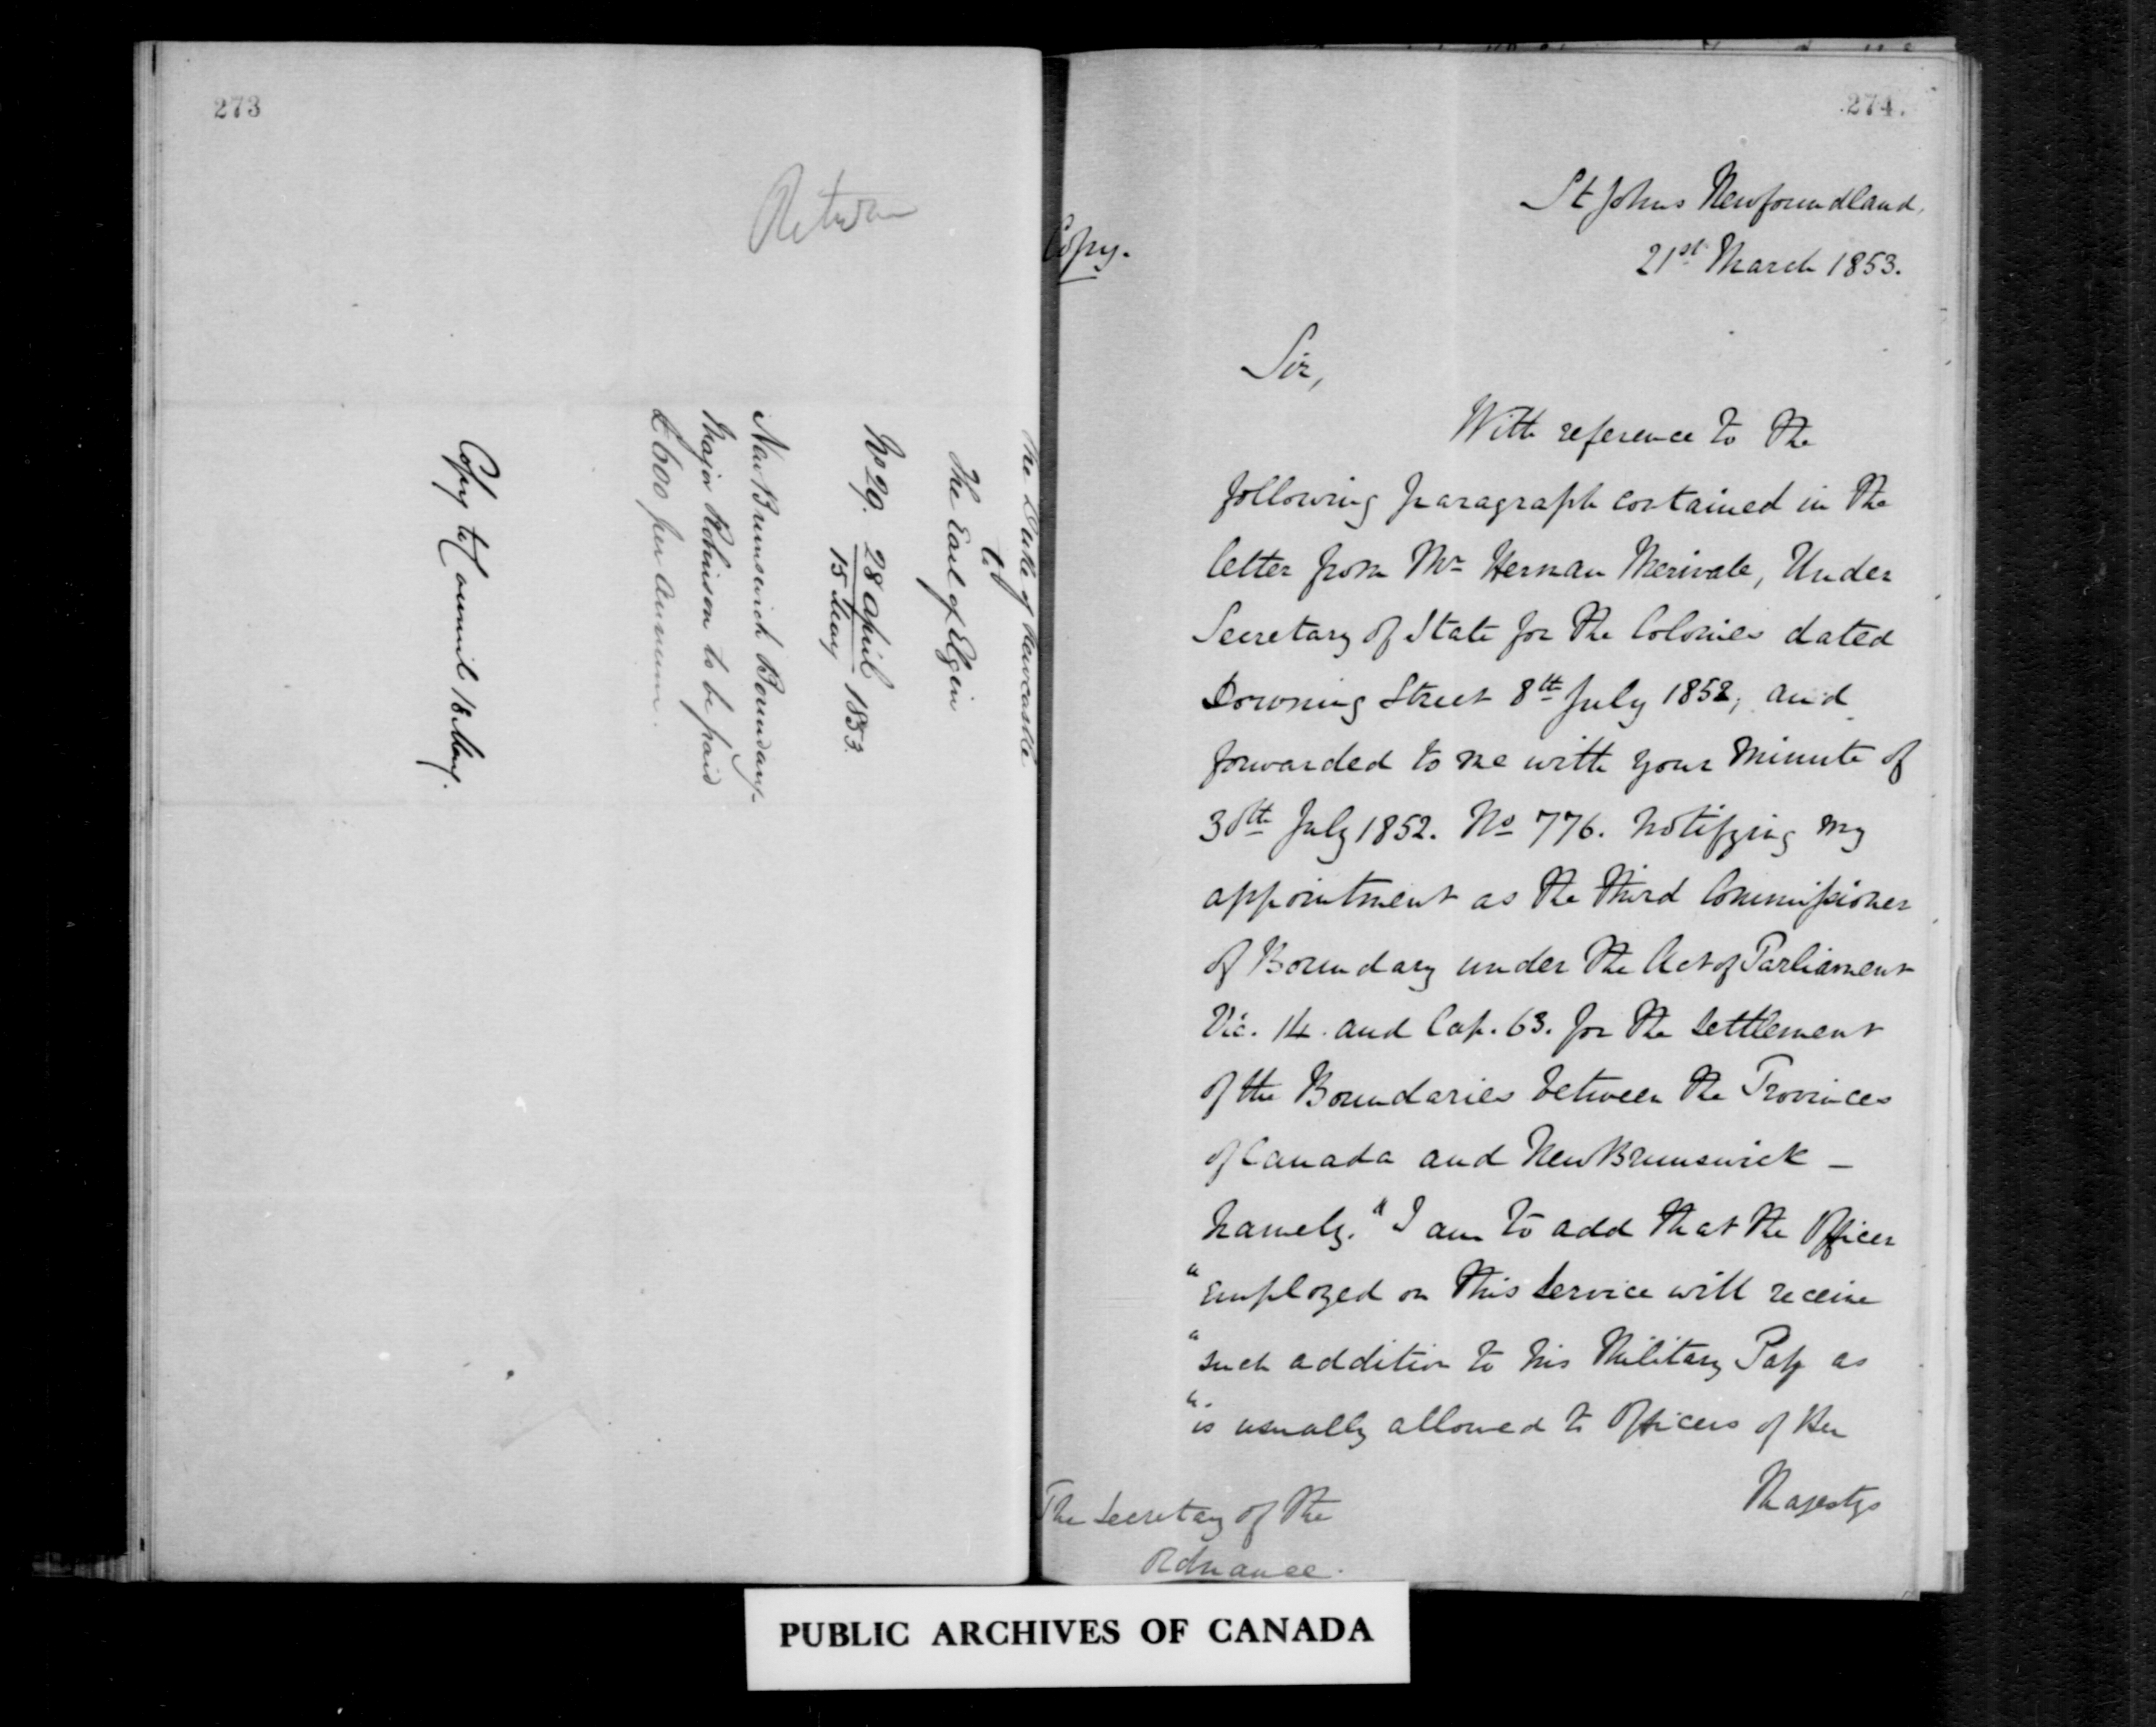 273
Return
The Duke of Newcastle
to
The Earl of Elgin
No 29. 28 April 1853.
15 May
New Brunswick Boundary.
Major Robinson to be paid
£600 per Annum.
Copy to Council 18 May.
274.
Copy.
St Johns Newfoundland.
21st March 1853.
Sir,
With reference to the
following paragraph contained in the
letter from Mr Herman Merivale, Under
Secretary of State for the Colonies dated
Downing Street 8th July 1852, and
forwarded to me with your Minute of
30th July 1852. No 776. Notifying my
appointment as the third Commissioner
of Boundary under the Act of Parliament
Vic. 14. and Cap. 63. for the settlement
of the Boundaries between the Provinces
of Canada and New Brunswick –
Namely. "I am to add that the Officer
"employed on this service will receive
"such addition to his Military Pay as
"is usually allowed to Officers of Her
Majestys
The Secretary of the
Ordnance.
PUBLIC ARCHIVES OF CANADA